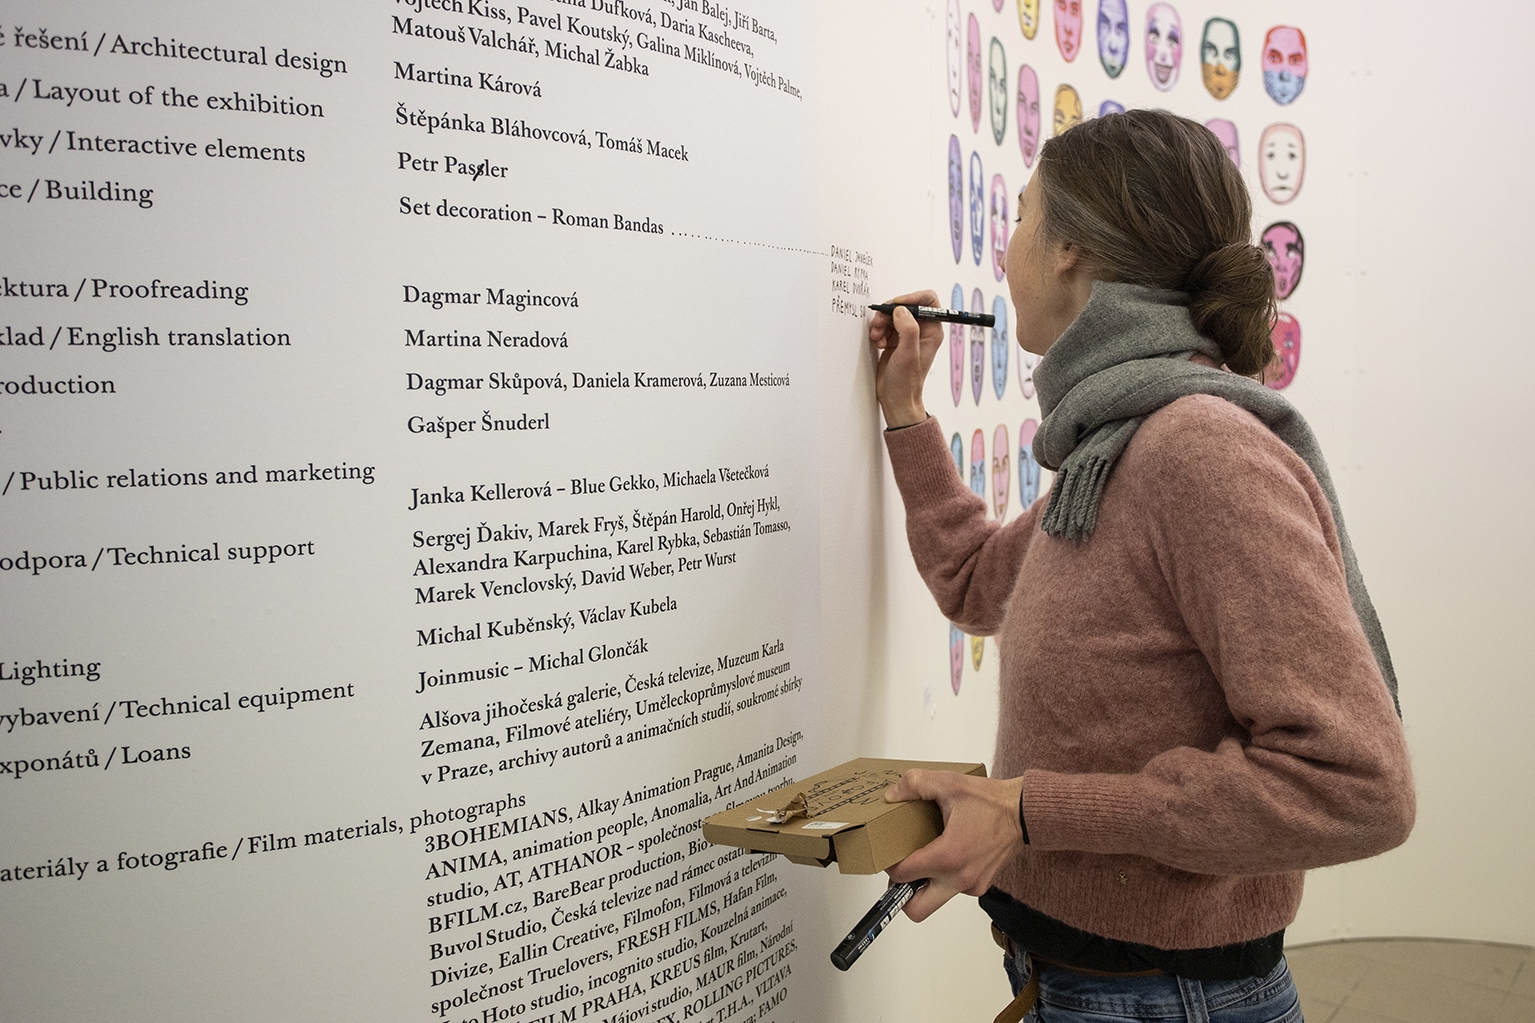 Jan Balej, Jiří Barta,
Dufková, Daria Kascheeva,
Vojtěch Kiss, Pavel Koutský, Galina Miklínová, Vojtěch Palme,
Matouš Valchář, Michal Žabka
řešení / Architectural design
Martina Kárová
a / Layout of the exhibition
Štěpánka Bláhovcová, Tomáš Macek
vky / Interactive elements
Petr Passler
ce / Building
Set decoration – Roman Bandas
DANIEL
DANIEL
KAREL DVOŘÁK
PŘEMYSL
ktura / Proofreading
Dagmar Magincová
klad / English translation
Martina Neradová
roduction
Dagmar Skůpová, Daniela Kramerová, Zuzana Mesticová
Gašper Šnuderl
/ Public relations and marketing
Janka Kellerová – Blue Gekko, Michaela Všetečková
odpora / Technical support
Sergej Ďakiv, Marek Fryš, Štěpán Harold, Onřej Hykl,
Alexandra Karpuchina, Karel Rybka, Sebastián Tomasso,
Marek Venclovský, David Weber, Petr Wurst
Michal Kuběnský, Václav Kubela
Lighting
Joinmusic – Michal Glončák
vybavení / Technical equipment
Alšova jihočeská galerie, Česká televize, Muzeum Karla
Zemana, Filmové ateliéry, Uměleckoprůmyslové museum
v Praze, archivy autorů a animačních studií, soukromé sbírky
xponátů / Loans
ateriály a fotografie / Film materials, photographs
3BOHEMIANS, Alkay Animation Prague, Amanita Design,
ANIMA, animation people, Anomalia, Art And Animation
studio, AT, ATHANOR – společnost filmovou tvorbu,
BFILM.cz, BareBear production,
Buvol Studio, Česká televize nad rámec
Divize, Eallin Creative, Filmofon, Filmová a televizní
společnost Truelovers, FRESH FILMS, Hafan Film,
Hoto studio, incognito studio, Kouzelná animace,
FILM PRAHA, KREUS film, Krutart,
Májovi studio, MAUR film, Národní
ROLLING PICTURES,
T.H.A., VLTAVA
FAMO